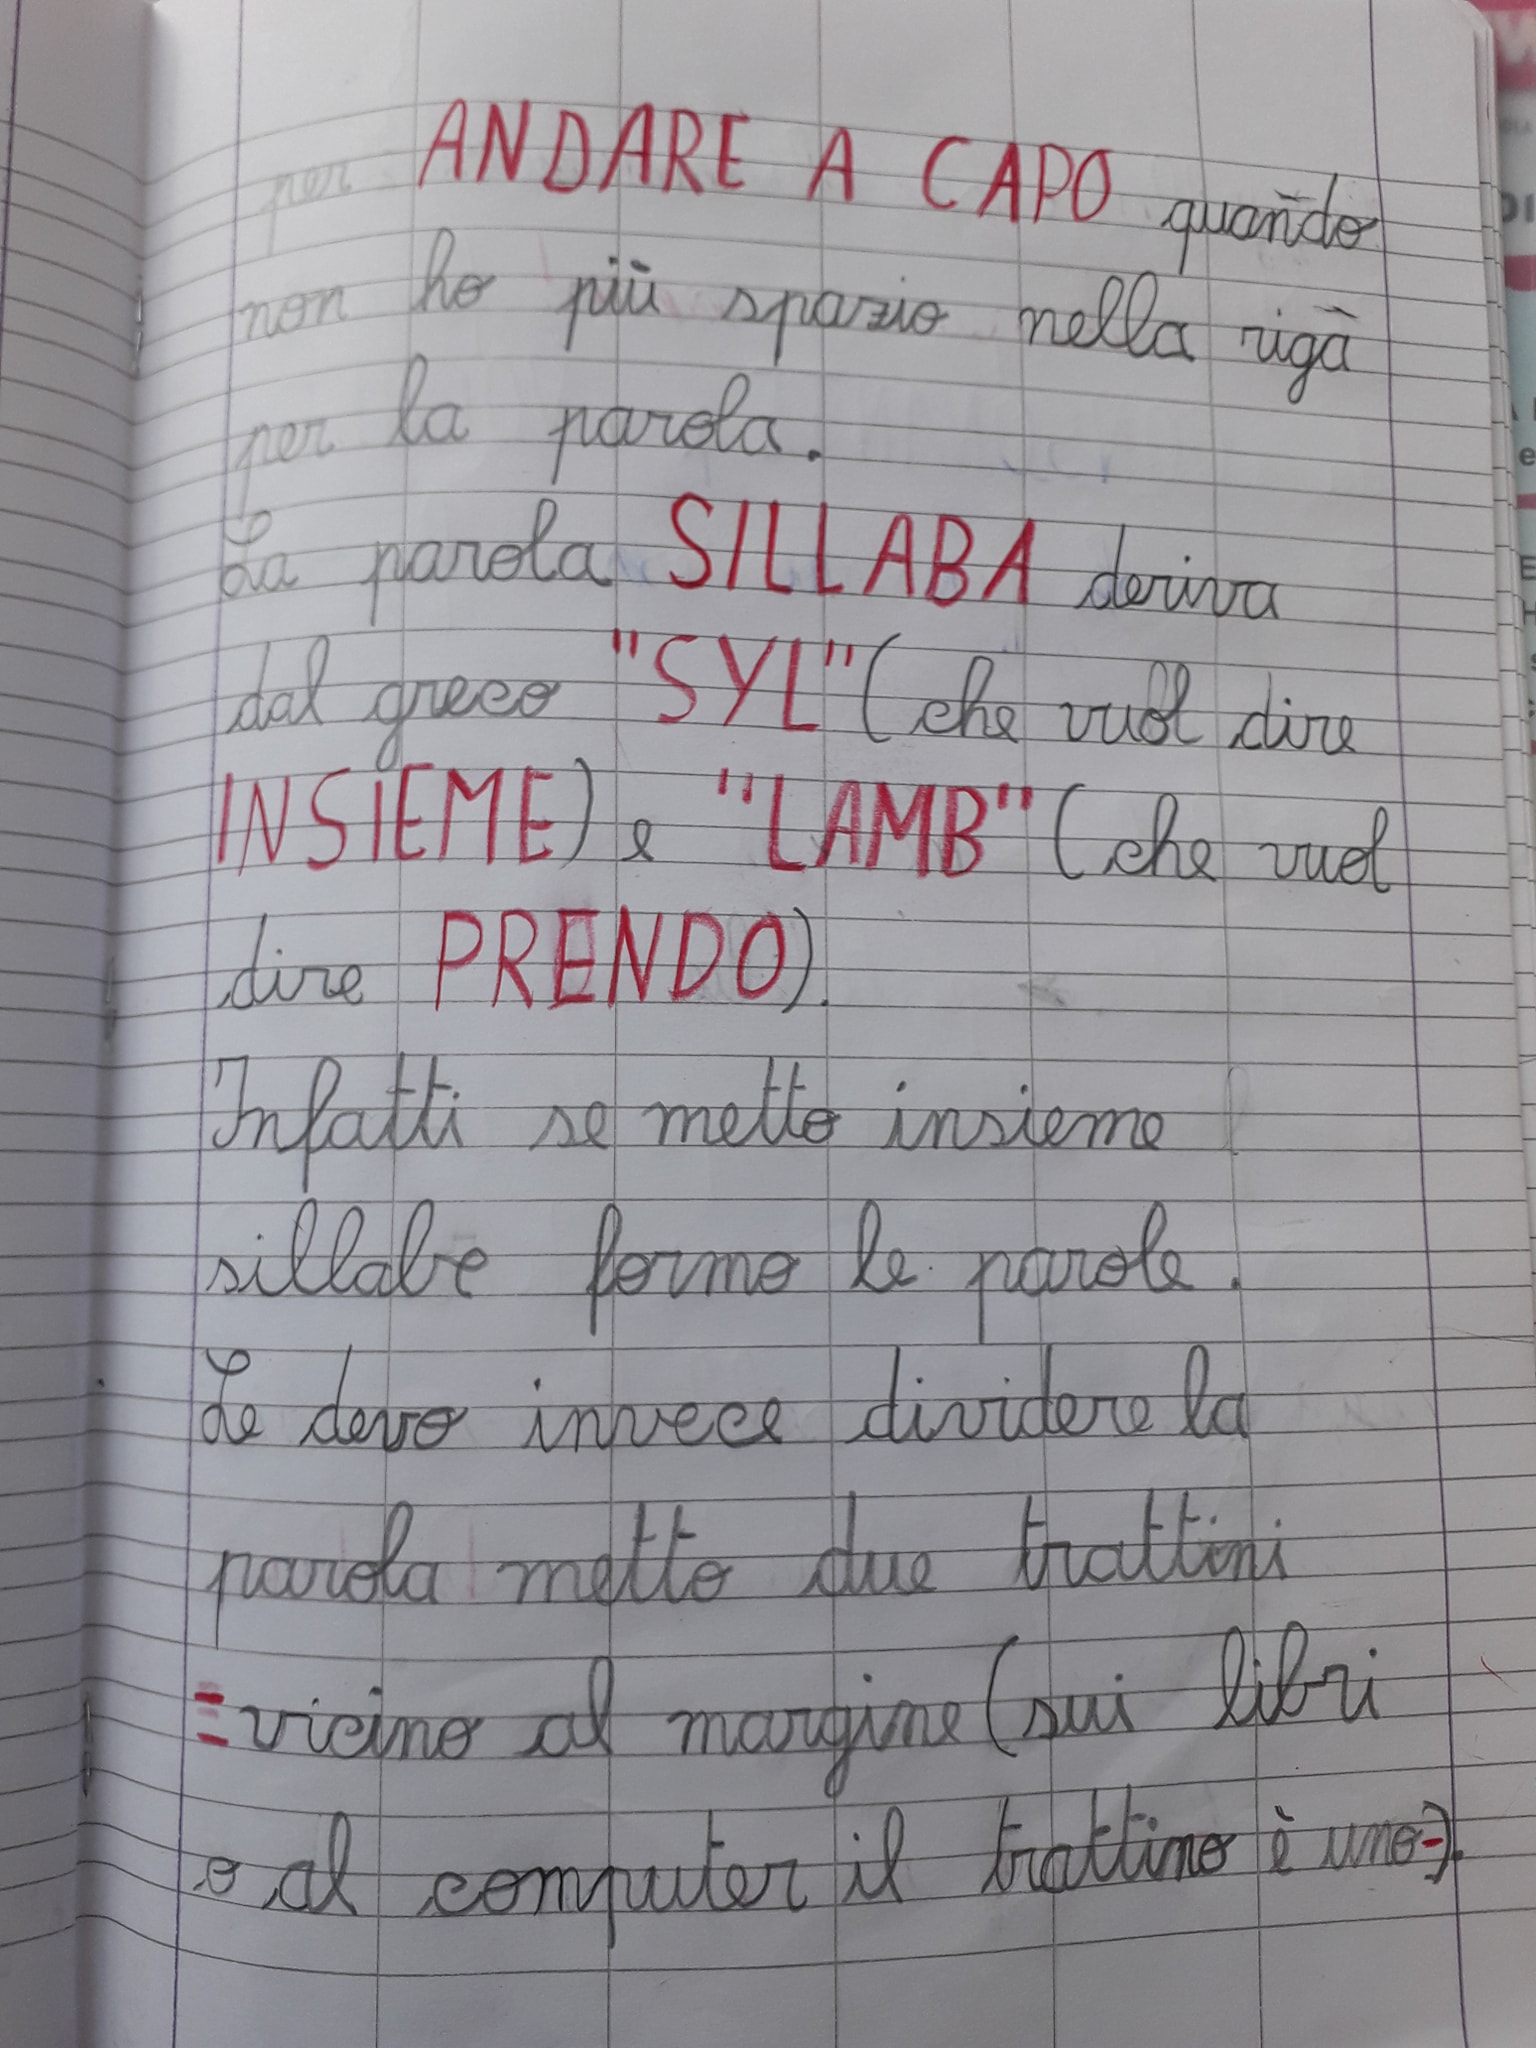 per ANDARE A CAPO quando
non ho più spazio nella riga
per la parola.
La parola SILLABA deriva
dal greco "SYL" (che vuol dire
INSIEME) e "LAMB" (che vuol
dire PRENDO).
Infatti se metto insieme
sillabe formo le parole.
Se devo invece dividere la
parola metto due trattini
= vicino al margine (sui libri
o al computer il trattino è uno -).